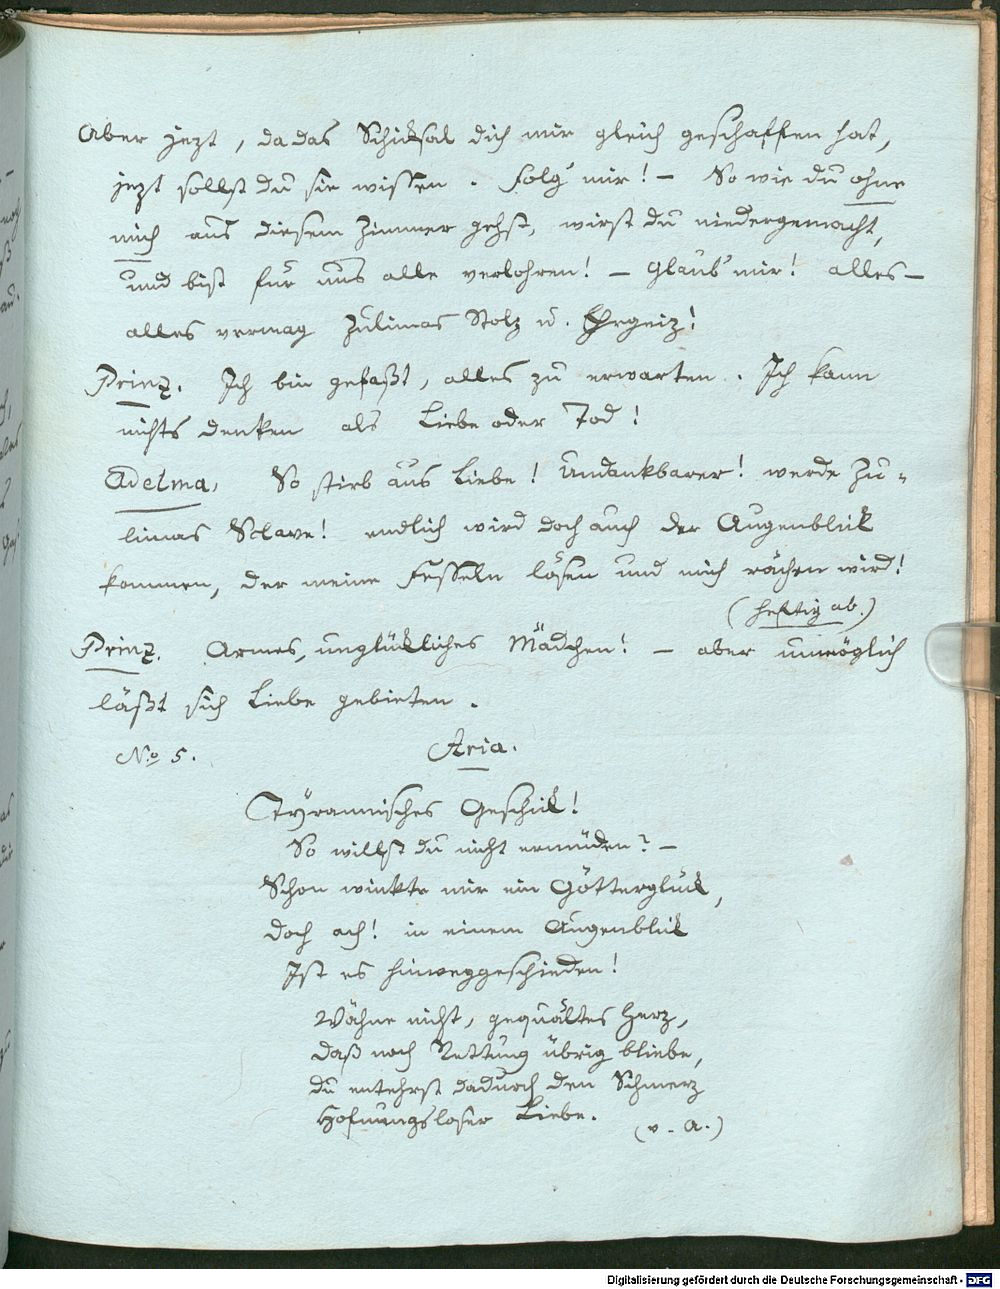 Aber jezt, da das Schiksal dich mir gleich geschaffen hat,
jezt sollst du sie wissen. Folg' mir! – So wie du ohne
mich aus diesem Zimmer gehst, wirst du niedergemacht,
und bist für uns alle verlohren! – Glaub' mir! alles –
alles vermag Zulimas Stolz u. Ehrgeiz!
Prinz. Ich bin gefaßt, alles zu erwarten. Ich kann
nichts denken als Liebe oder Tod!
Adelma. So stirb aus Liebe! Undankbarer! werde Zu-
limas Sclave! endlich wird doch auch der Augenblik
kommen, der meine Fesseln lösen und mich rächen wird!
(heftig ab.)
Prinz. Armes, unglükliches Mädchen! – aber unmöglich
läßt sich Liebe gebieten.
No. 5. Aria.
Tyrannisches Geschik!
So willst du nicht ermüden? –
Schon winkte mir ein Götterglük,
doch ach! in einem Augenblik
Ist es hinweggeschieden!
Wähne nicht, gequältes Herz,
daß noch Rettung übrig bliebe,
du entehrst dadurch den Schmerz
Hofnungsloser Liebe.
(v. A.)
Digitalisierung gefördert durch die Deutsche Forschungsgemeinschaft - DFG